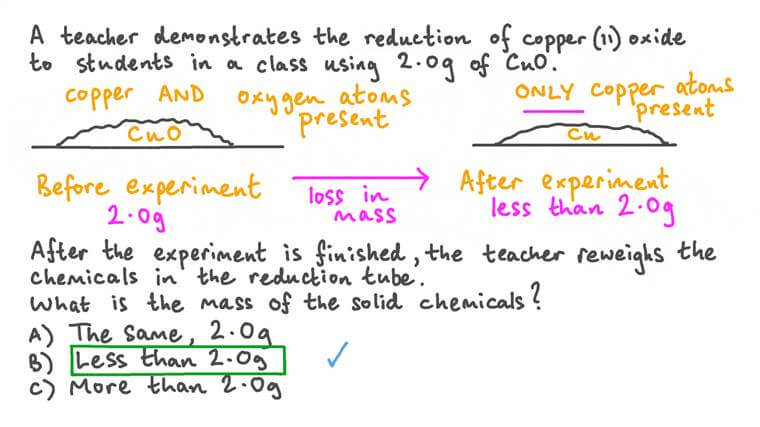 A teacher demonstrates the reduction of copper (11) oxide
to students in a class using 2.0g of CuO.
copper AND oxygen atoms
present
ONLY copper atoms
present
CuO
Cu
Before experiment
2.0g
loss in
mass
After experiment
less than 2.0g
After the experiment is finished, the teacher reweighs the
chemicals in the reduction tube.
What is the mass of the solid chemicals?
A) The same, 2.0g
B) Less than 2.0g
C) More than 2.0g